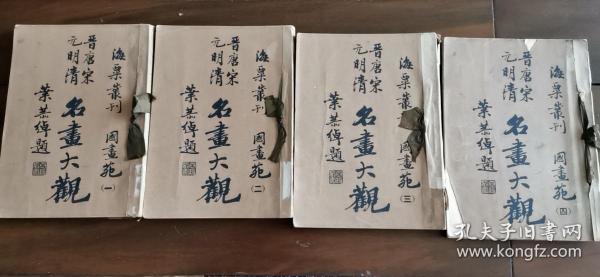 海粟叢刊 國畫苑 (一)
晋唐宋
元明清
名畫大觀
葉恭綽題
海粟叢刊 國畫苑 (二)
晋唐宋
元明清
名畫大觀
葉恭綽題
海粟叢刊 國畫苑 (三)
晋唐宋
元明清
名畫大觀
葉恭綽題
海粟叢刊 國畫苑 (四)
晋唐宋
元明清
名畫大觀
葉恭綽題
孔夫子旧书网
www.kongfz.com